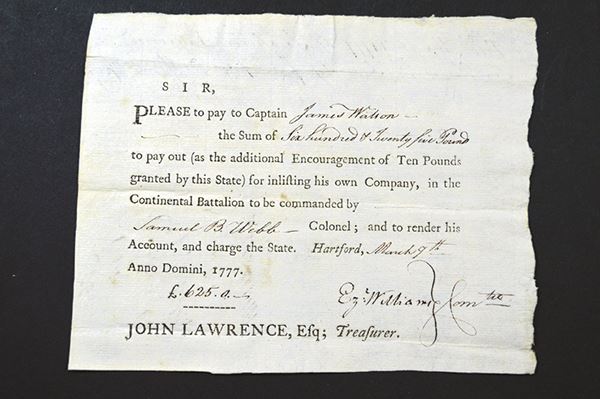 SIR,
PLEASE to pay to Captain James Watson
the Sum of Six hundred & Twenty five Pound
to pay out (as the additional Encouragement of Ten Pounds
granted by this State) for inliſting his own Company, in the
Continental Battalion to be commanded by
Samuel B. Webb — Colonel; and to render his
Account, and charge the State. Hartford, March 7th
Anno Domini, 1777.
£625.0.—
Ezl Williams Comtee
JOHN LAWRENCE, Eſq; Treaſurer.